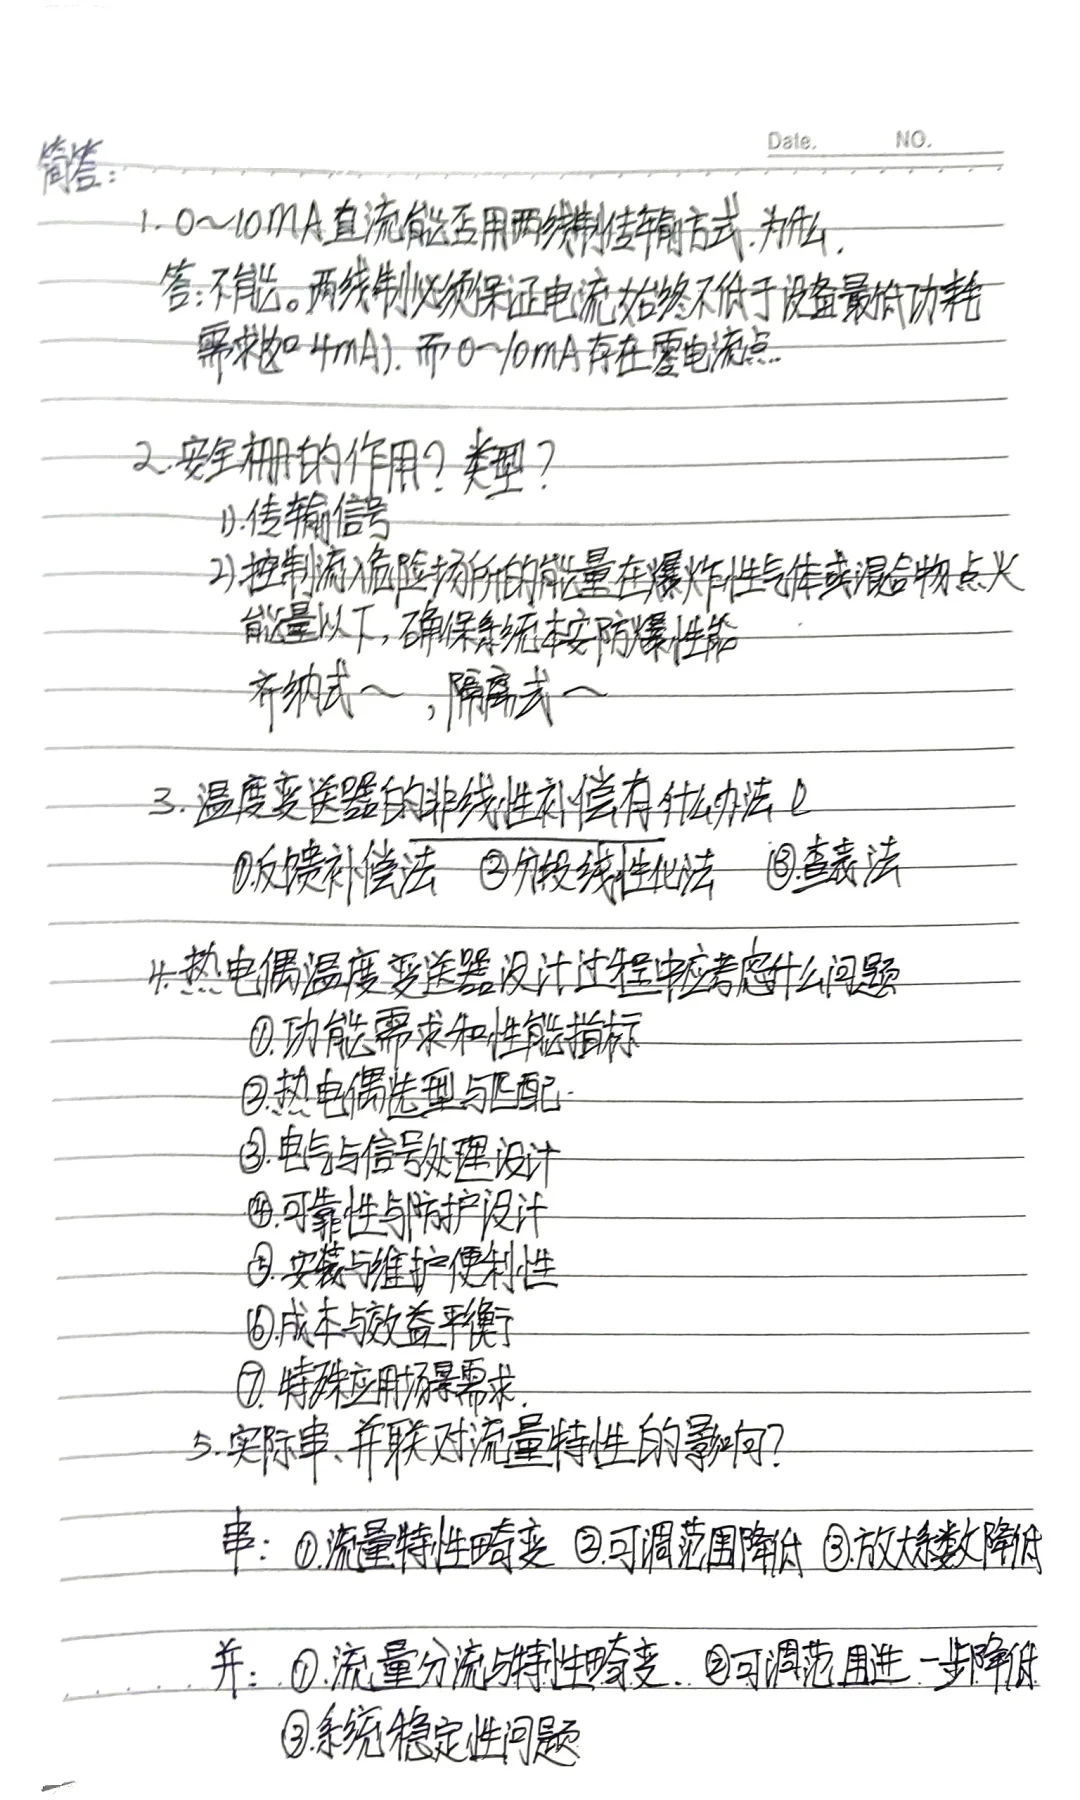 Date. NO.
简答:
1. 0～10mA直流能否用两线制传输方式.为什么.
答:不能。两线制必须保证电流始终不低于设备最低功耗
需求(如 4mA).而0～10mA存在零电流点.
2.安全栅的作用？类型？
1).传输信号
2)控制流入危险场所的能量在爆炸性气体或混合物点火
能量以下,确保系统本安防爆性能
齐纳式～,隔离式～
3.温度变送器的非线性补偿有什么办法
①.反馈补偿法 ②分段线性化法 ③.查表法
4.热电偶温度变送器设计过程中应考虑什么问题
①.功能需求和性能指标
②.热电偶选型与匹配.
③.电气与信号处理设计
④.可靠性与防护设计
⑤.安装与维护便利性
⑥成本与效益平衡
⑦.特殊应用场景需求.
5.实际串、并联对流量特性的影响？
串: ①.流量特性畸变 ②.可调范围降低 ③.放大系数降低
并: ①.流量分流与特性畸变. ②可调范围进一步降低
③.系统稳定性问题